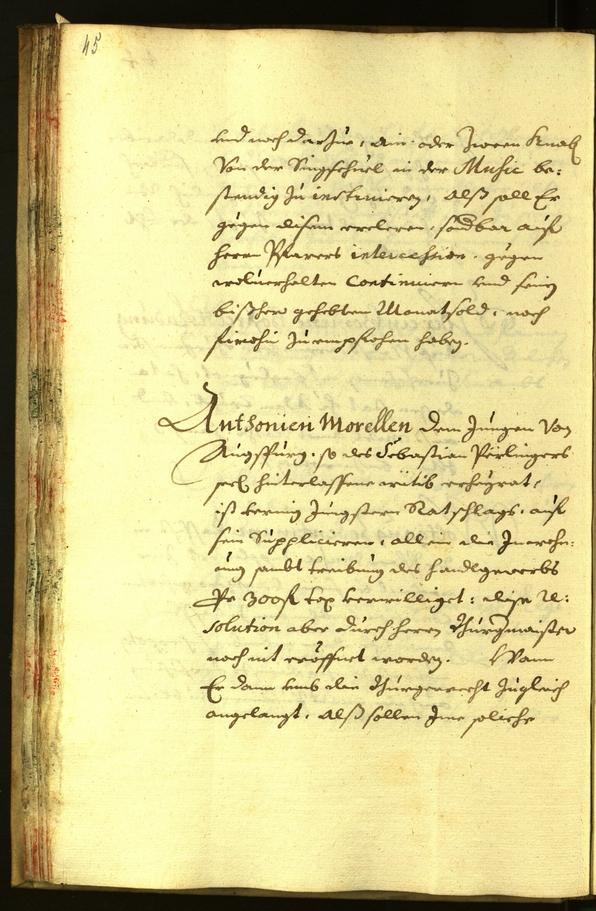 45
und noch darzue, ain oder zween Knab
Von der Singschuel in der Music be:
stendig zu instruieren, Alß soll Er
gegen disem ercleren, sonderbar auf
herrn Pfarers intercession, gegen
wolverhalten Continuiern und sein
bißhero gehebten Monatsold, noch
firohin zuempfahen haben.
Anthonien Morellen dem Jungen Von
Augspurg, so des Sebastian Pörlingers
seel hinterlassene witib erheyrat,
ist vernig Jüngstern Ratschlags, auf
sein Supplicieren, allein die Inwohn:
ung sambt treibung des handlgewerbs
Per 300 fl tax verwilliget: dise Re:
solution aber durch herrn Burgmaister
noch nit eröffnet worden. Wann
Er dann umb die Burgerrecht zugleich
angelangt, Alß sollen Ime soliche